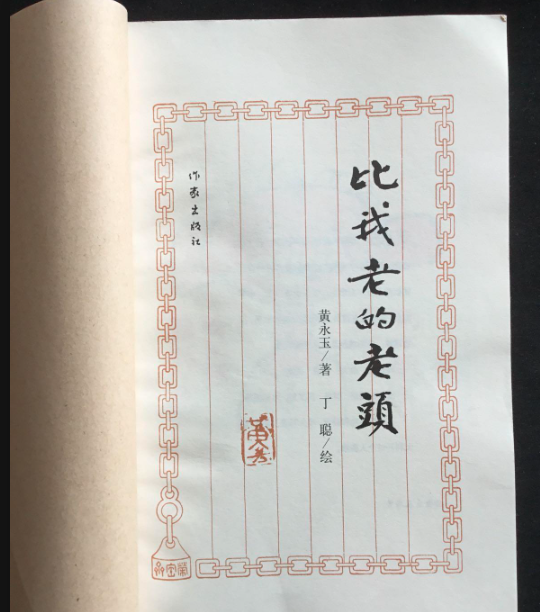 比我老的老頭
黄永玉/著 丁聪/绘
作家出版社